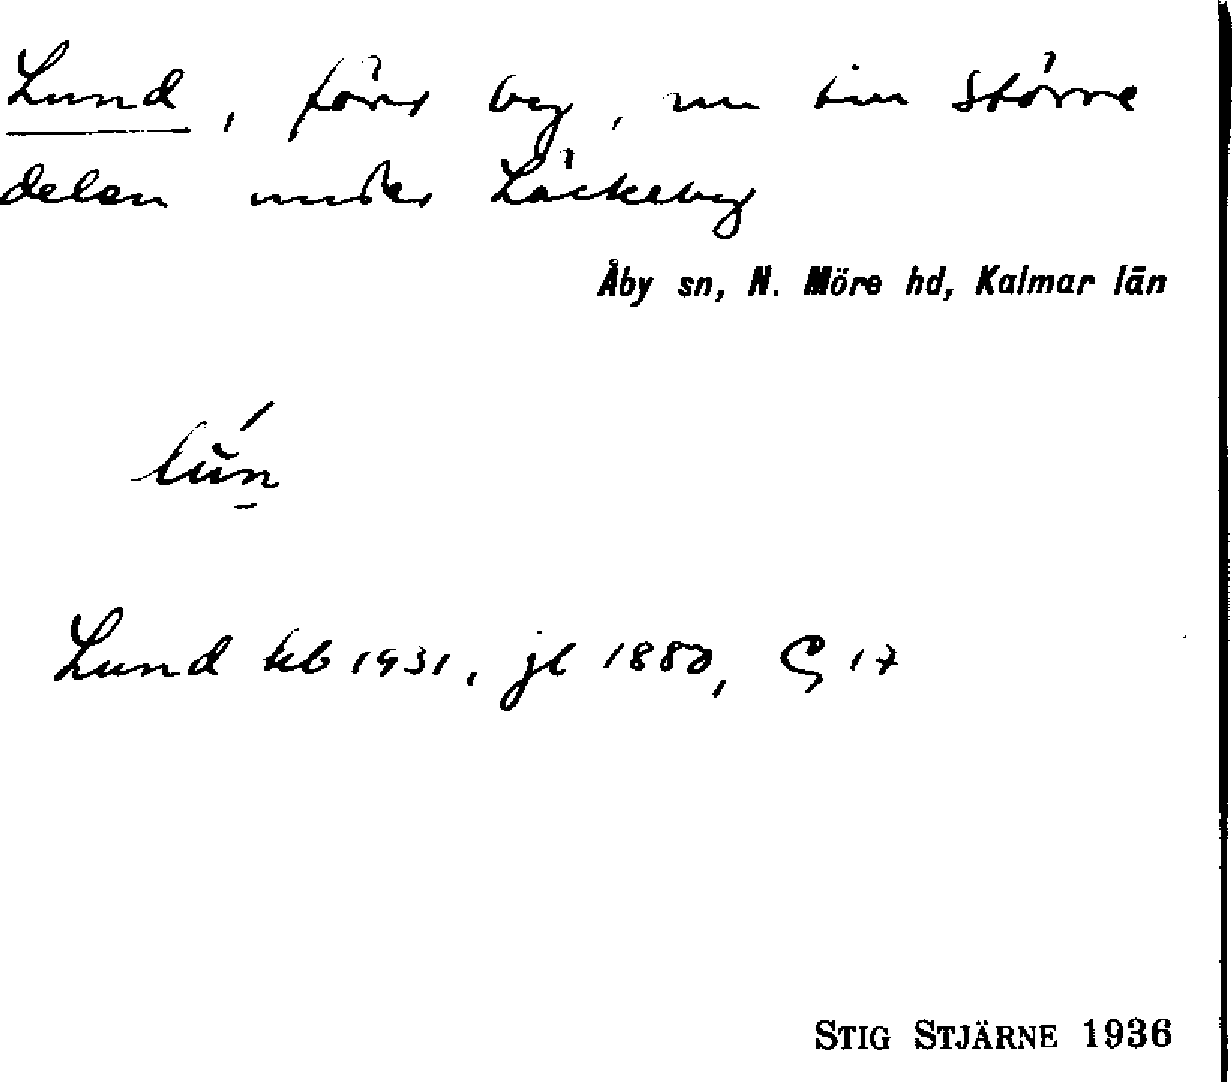 Lund, förr by, nu till större
delen under Läckeby
Åby sn, N. Möre hd, Kalmar län
lún
Lund kb 1931, jl 1880, G 17
STIG STJÄRNE 1936